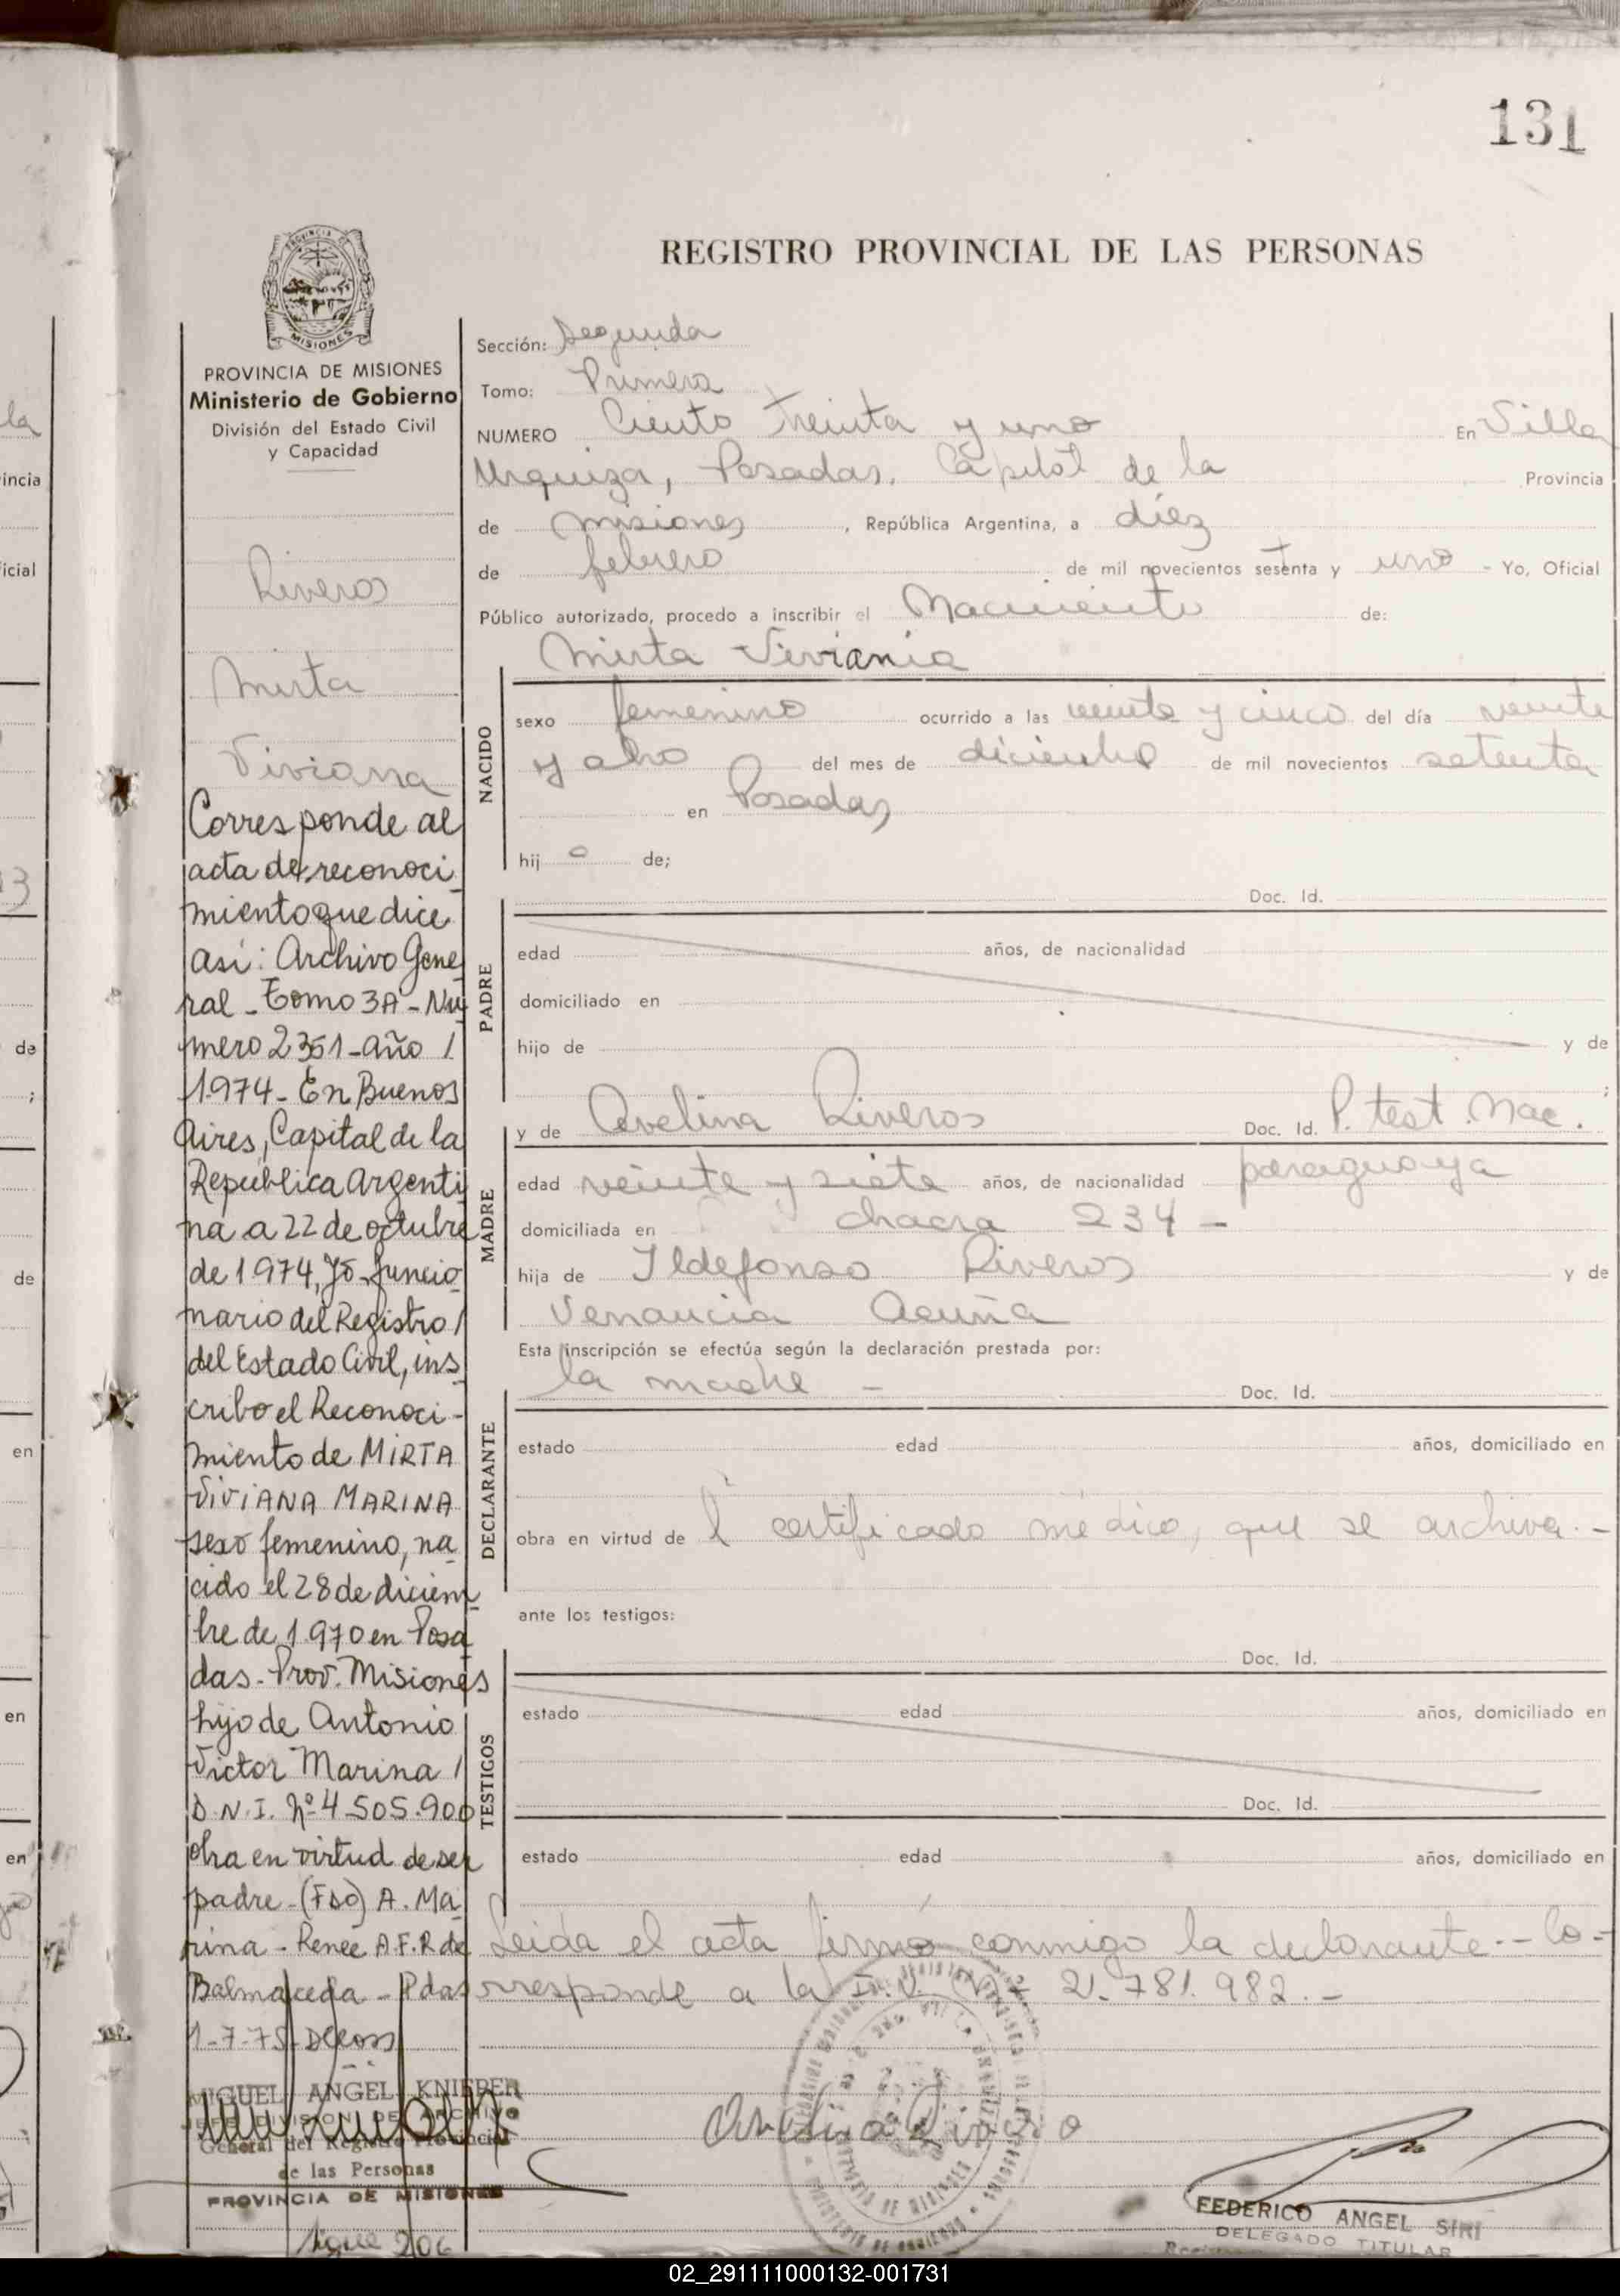 131
REGISTRO PROVINCIAL DE LAS PERSONAS
PROVINCIA DE MISIONES
Ministerio de Gobierno
División del Estado Civil
y Capacidad
Riveros
Mirta
Viviana
Corresponde al
acta de reconoci
miento que dice
así: Archivo Gene
ral - Tomo 3A - Nú
mero 2351 - año /
1.974 - En Buenos
Aires, Capital de la
República Argenti
na a 22 de octubre
de 1974, Yo funcio
nario del Registro /
del Estado Civil, ins
cribo el Reconoci-
miento de MIRTA
VIVIANA MARINA
sexo femenino, na
cido el 28 de diciem
bre de 1.970 en Posa
das - Prov. Misiones
hijo de Antonio
Victor Marina /
D.N.I. Nº 4.505.900
obra en virtud de ser
padre - (Fdo) A. Ma
rina - Renee A.F.R de
Balmaceda - Pdas
1-7-75
MIGUEL ANGEL KNIEPER
JEFE DIVISION DE ARCHIVO
General del Registro Provincial
de las Personas
PROVINCIA DE MISIONES
Sigue 206
Sección: Segunda
Tomo: Primera
NUMERO Ciento treinta y uno En Villa
Urquiza, Posadas, Capital de la Provincia
de Misiones, República Argentina, a diez
de febrero de mil novecientos sesenta y uno - Yo, Oficial
Público autorizado, procedo a inscribir el Nacimiento de:
Mirta Viviania
NACIDO
sexo femenino ocurrido a las veinte y cinco del día veinte
y ocho del mes de diciembre de mil novecientos setenta
en Posadas
hij a de;
PADRE
Doc. Id.
edad años, de nacionalidad
domiciliado en
hijo de y de
;
MADRE
y de Avelina Riveros Doc. Id. P. test. Nac.
edad veinte y siete años, de nacionalidad paraguaya
domiciliada en chacra 234 -
hija de Ildefonso Riveros y de
Venancia Acuña
Esta inscripción se efectúa según la declaración prestada por:
DECLARANTE
la madre - Doc. Id.
estado edad años, domiciliado en
obra en virtud de l certificado médico, que se archiva.-
ante los testigos:
TESTIGOS
Doc. Id.
estado edad años, domiciliado en
Doc. Id.
estado edad años, domiciliado en
Leida el acta firmó conmigo la declarante.- Co-
rresponde a la Nº 21.781.982.-
Avelina Rivero
FEDERICO ANGEL SIRI
DELEGADO TITULAR
02_291111000132-001731